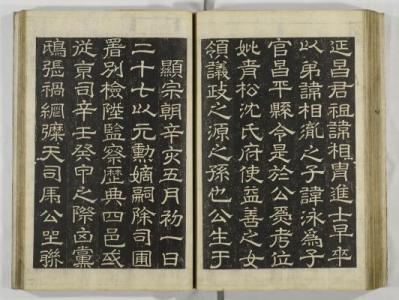 延昌君祖諱相胄進士早卒
以弟諱相胤之子諱泳爲子
官昌平縣令是於公爲考位
妣青松沈氏府使益善之女
領議政之源之孫也公生于
顯宗朝辛亥五月初一日
二十七以元勳嫡嗣除司圃
署別檢陞監察歷典四邑或
從京司辛壬癸甲之際凶黨
鴟張禍網彌天司馬公坐聯